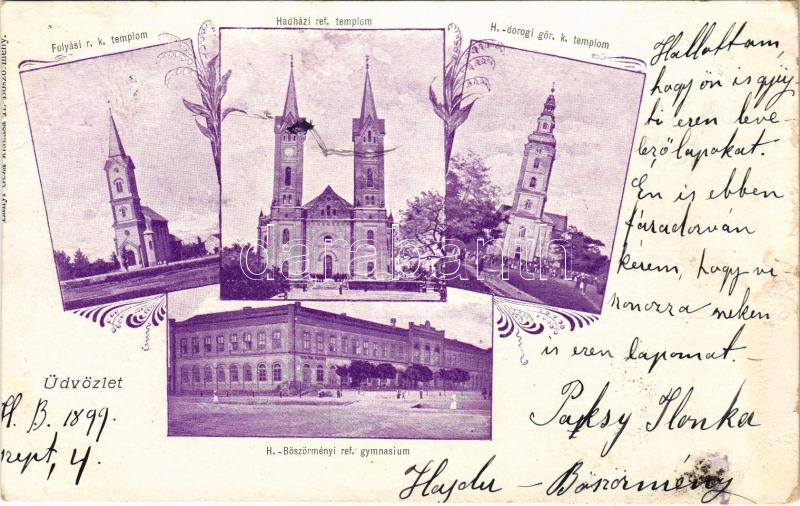 Folyási r. k. templom
Hadházi ref. templom
H.-dorogi gör. k. templom
Hallottam,
hogy ön is gyüj
ti ezen leve-
lezőlapokat.
Én is ebben
fáradozván
kérem, hogy vi
szonozza nekem
is ezen lapomat.-
Paksy Ilonka
Hajdu - Böszörmény
Üdvözlet
H. B. 1899.
szept, 4.
H.-Böszörményi ref. gymnasium
darabanth